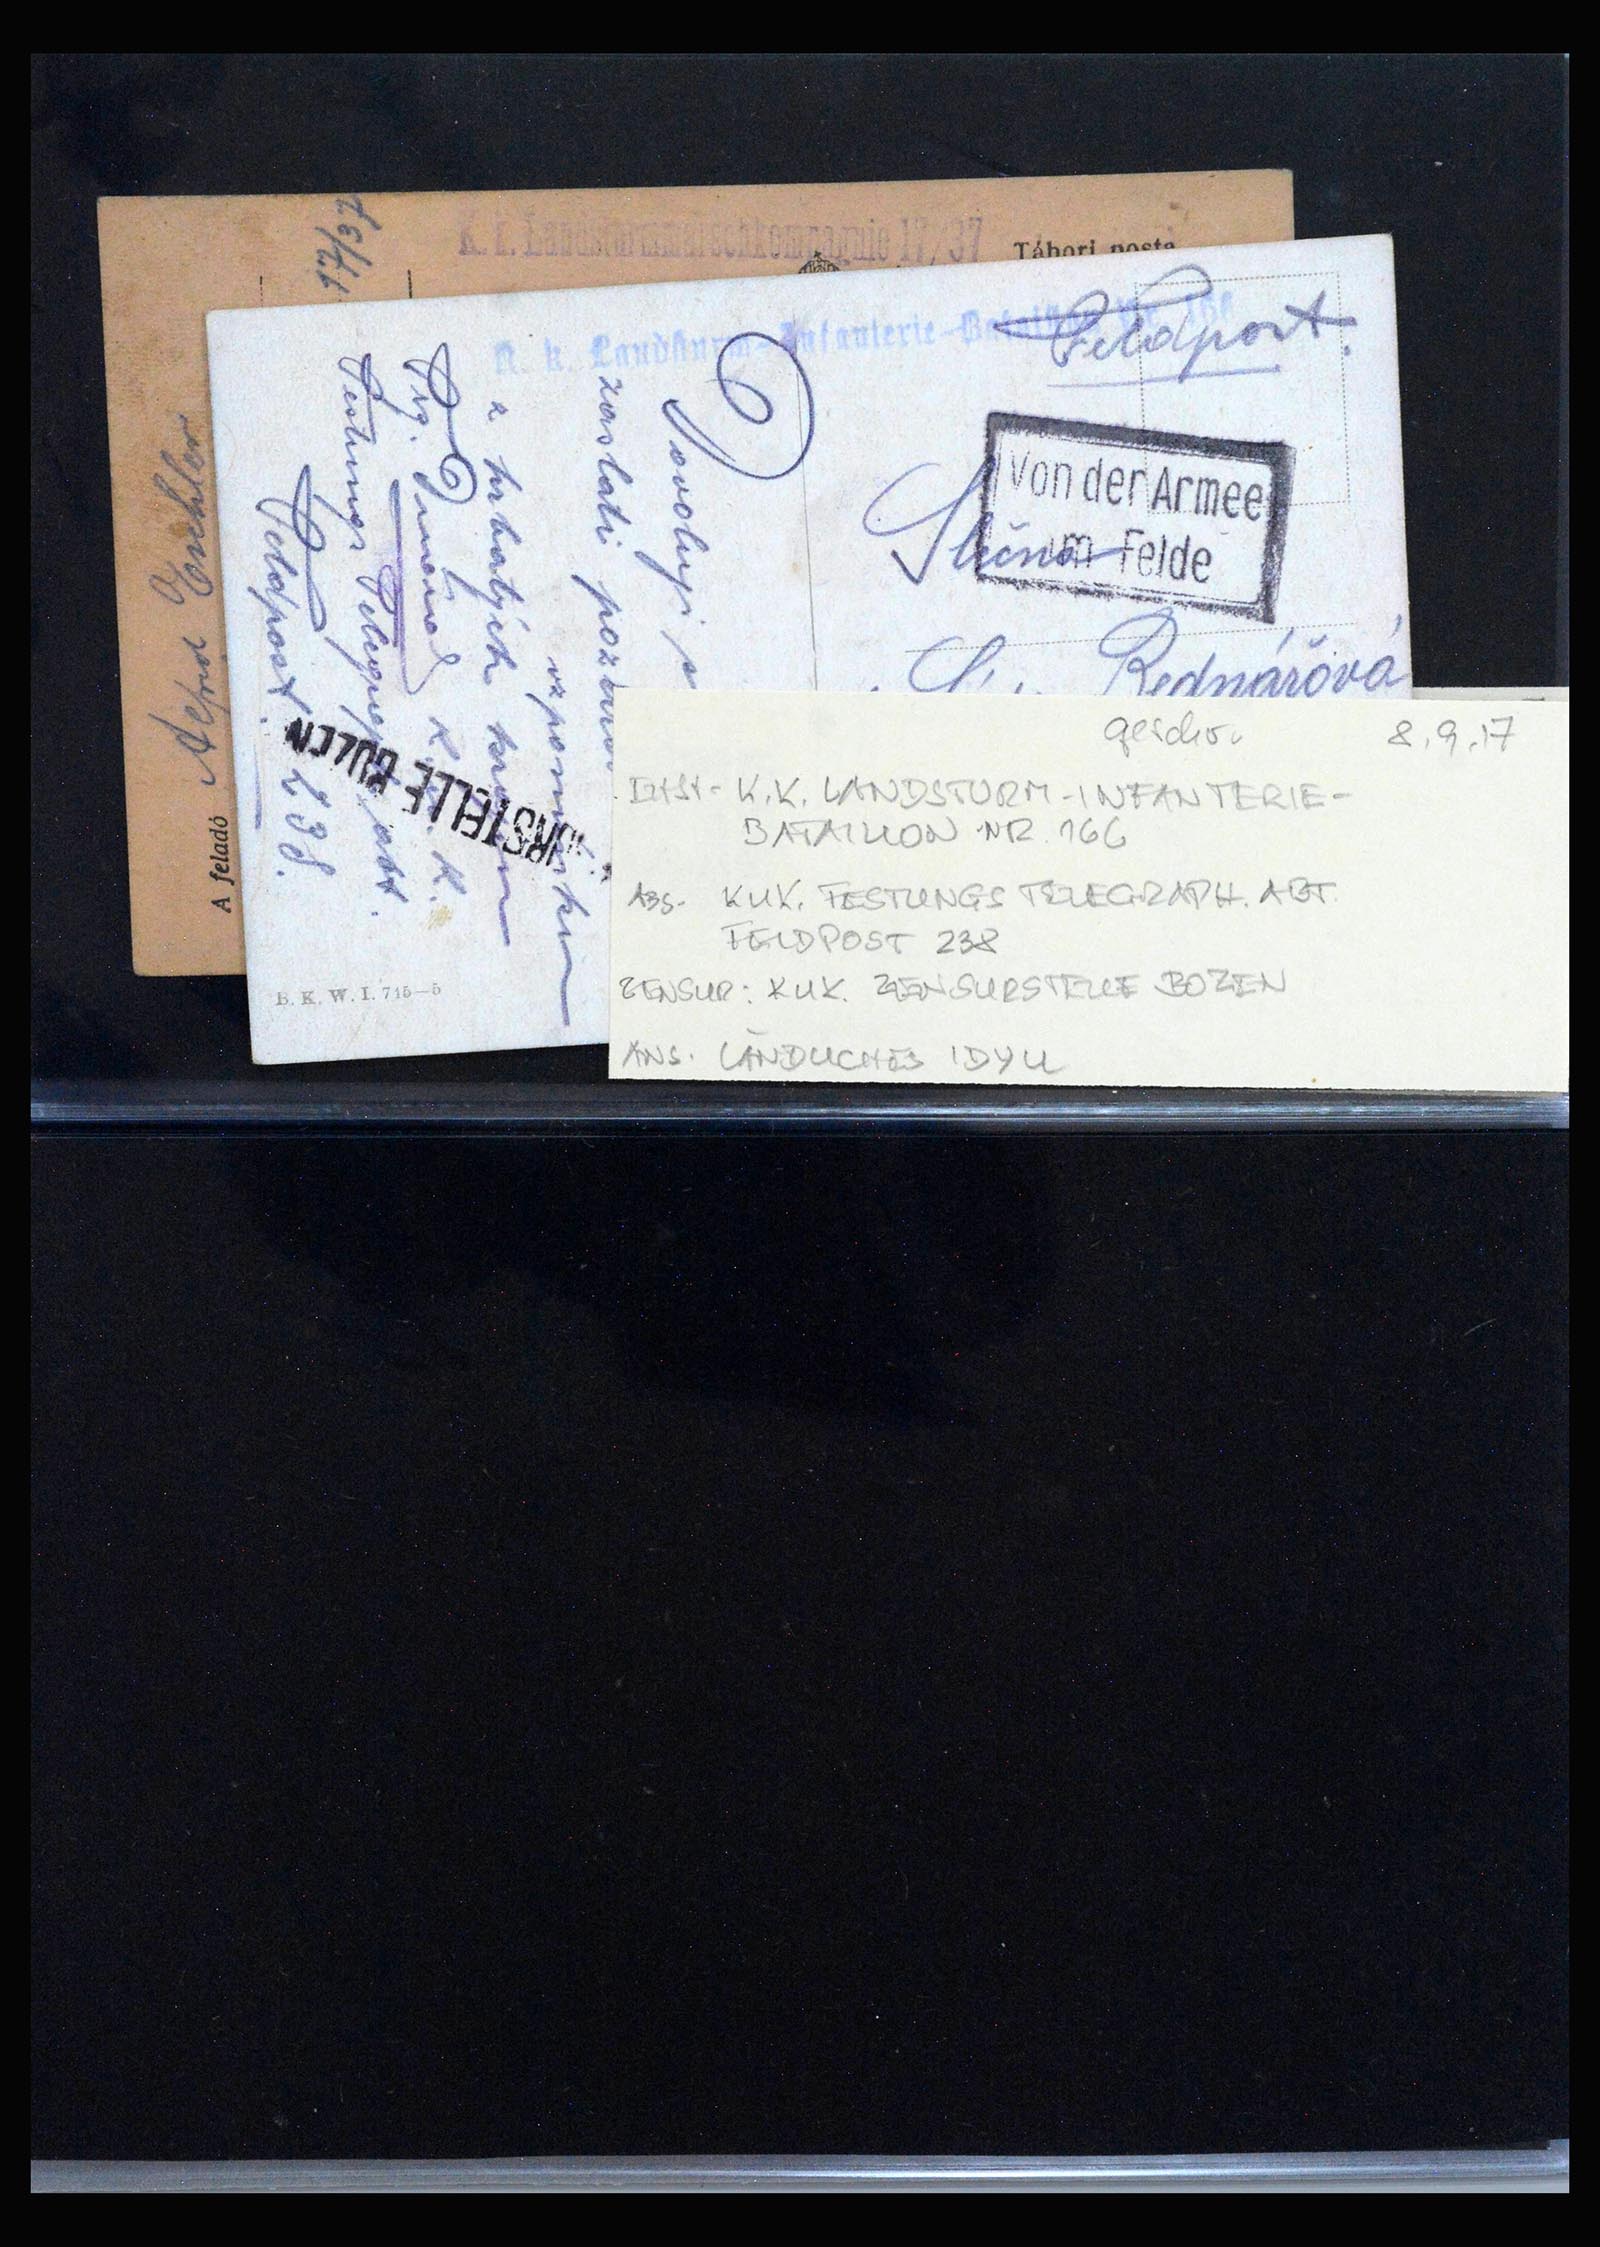 K. k. Landsturmmarschkompagnie 17/37
Tábori posta
A feladó
K. k. Landsturm-Infanterie-Bataillon Nr. 166
Feldpost.
Von der Armee
im Felde
Slečna
Bednářová
Dovoluji
zaslati
z
k. u. k.
Festungs Telegraph abt.
Feldpost 238.
ZENSURSTELLE BOZEN
B. K. W. I. 715–5
geschr. 8.9.17
K.K. LANDSTURM-INFANTERIE-
BATAILLON NR 166
ABS. KUK. FESTUNGS TELEGRAPH. ABT.
FELDPOST 238
ZENSUR: KUK. ZENSURSTELLE BOZEN
ANS. LÄNDLICHES IDYLL